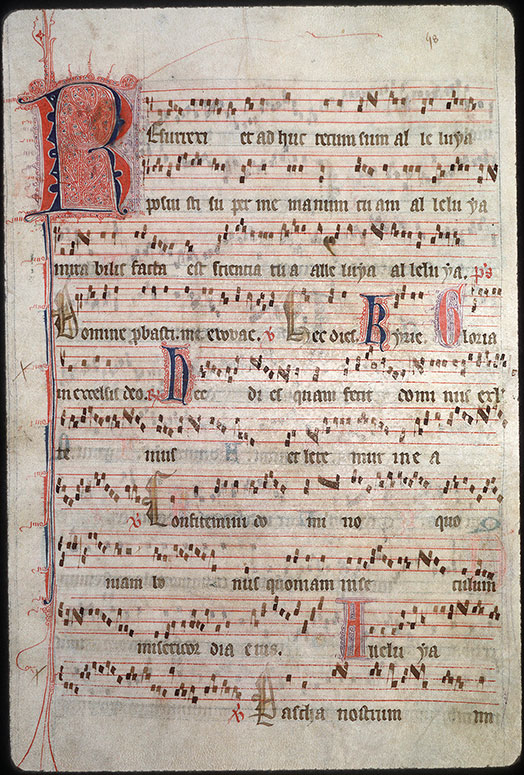 98
Resurrexi et ad huc tecum sum al le luya
posui sti su per me manum tu am al lelu ya
mira bilis facta est scientia tu a alle luya al lelu ya. ps
Domine probasti. me euouae. v Hec dies. Kyrie. Gloria
in excelsis deo. Hec di es quam fecit domi nus exl
te mus et lete mur in e a
v Confitemini do mi no quo
niam bo nus quoniam in se culum
misericor dia eius. Alleluya
v Pascha nostrum im